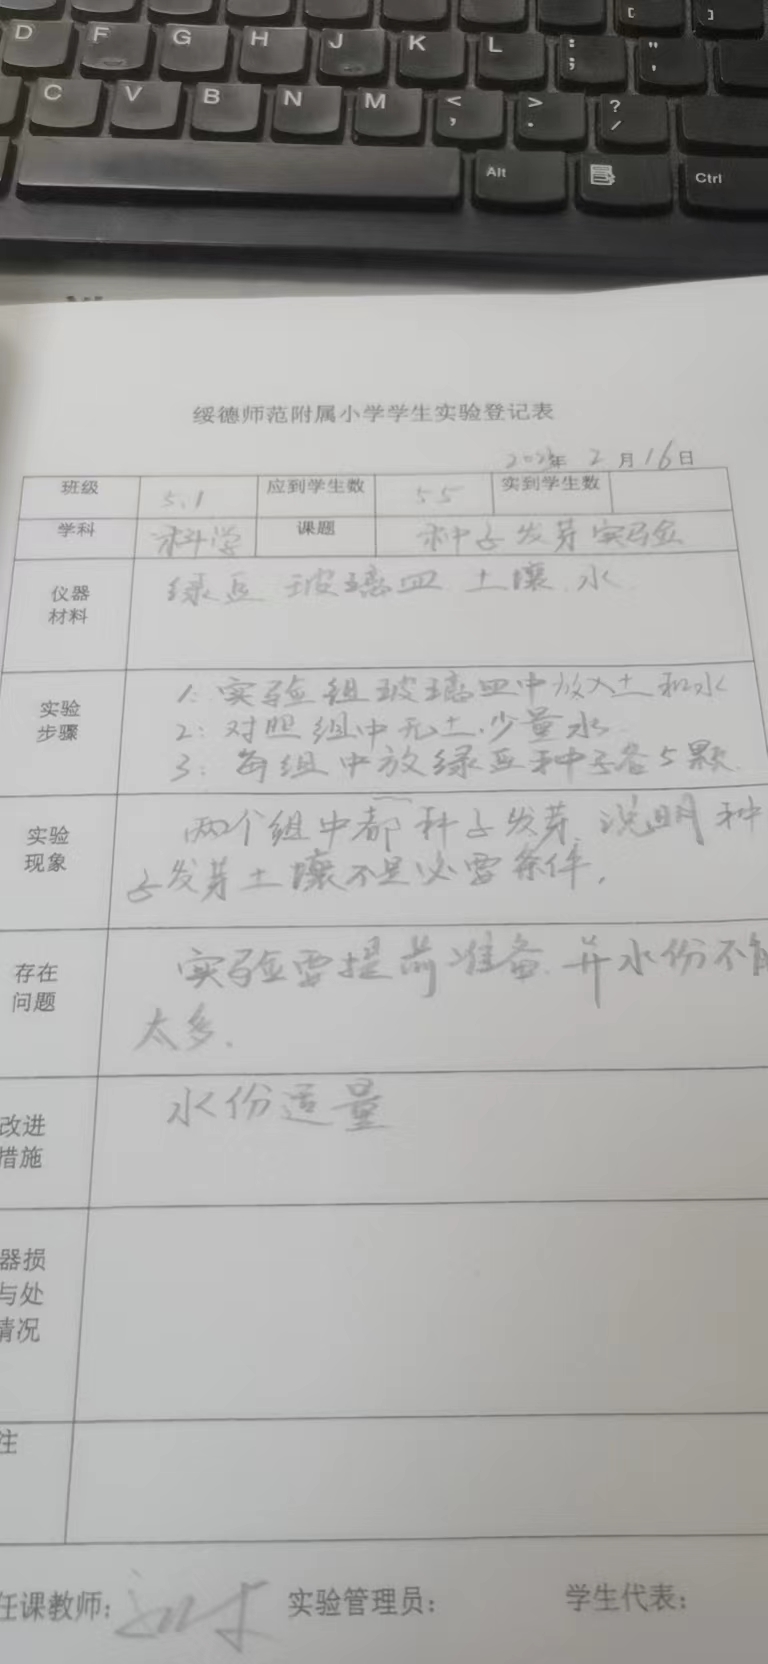 D F G H J K L : ; " '
C V B N M < , > . ? /
Alt Ctrl
绥德师范附属小学学生实验登记表
年 2 月 16 日
班级 5.1 应到学生数 55 实到学生数
学科 科学 课题 种子发芽实验
仪器材料 绿豆 玻璃皿 土壤 水
实验步骤
1: 实验组玻璃皿中放入土和水
2: 对照组中无土.少量水
3: 每组中放绿豆种子各5颗
实验现象
两个组中都种子发芽.说明种
子发芽土壤不是必要条件.
存在问题
实验需提前准备.并水份不能
太多.
改进措施
水份适量
器损
与处
情况
注
任课教师: 实验管理员: 学生代表: